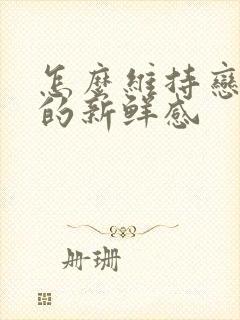 怎麼維持戀
的新鮮感
冊珊